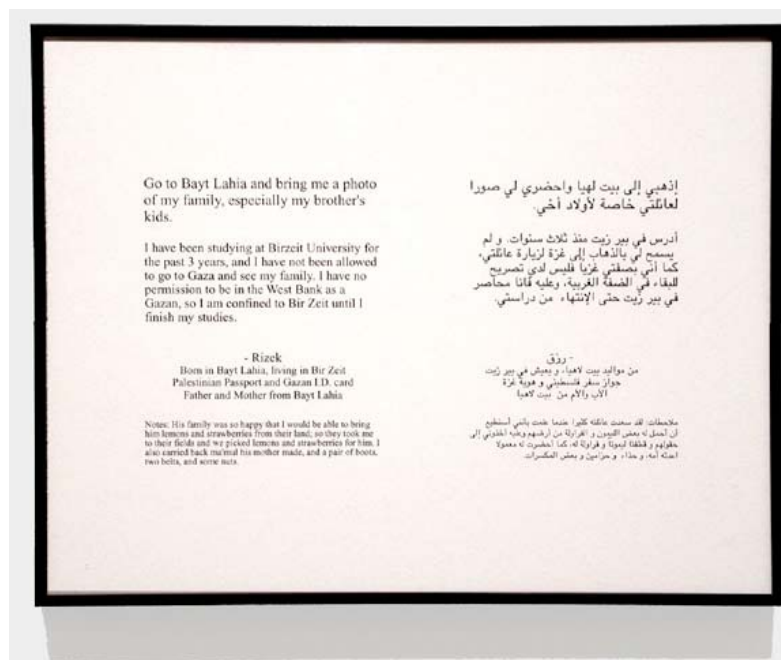 Go to Bayt Lahia and bring me a photo
of my family, especially my brother's
kids.
I have been studying at Birzeit University for
the past 3 years, and I have not been allowed
to go to Gaza and see my family. I have no
permission to be in the West Bank as a
Gazan, so I am confined to Bir Zeit until I
finish my studies.
- Rizek
Born in Bayt Lahia, living in Bir Zeit
Palestinian Passport and Gazan I.D. card
Father and Mother from Bayt Lahia
Notes: His family was so happy that I would be able to bring
him lemons and strawberries from their land, so they took me
to their fields and we picked lemons and strawberries for him. I
also carried back ma'mul his mother made, and a pair of boots,
two belts, and some nuts.
إذهبي إلى بيت لهيا واحضري لي صورا
لعائلتي خاصة لأولاد أخي.
أدرس في بير زيت منذ ثلاث سنوات. و لم
يسمح لي بالذهاب إلى غزة لزيارة عائلتي،
كما أني بصفتي غزيا فليس لدي تصريح
للبقاء في الضفة الغربية، وعليه فانا محاصر
في بير زيت حتى الإنتهاء من دراستي.
- رزق
من مواليد بيت لاهيا، و يعيش في بير زيت
جواز سفر فلسطيني و هوية غزة
الأب والأم من بيت لاهيا
ملاحظات: لقد سعدت عائلته كثيرا عندما علمت بأنني أستطيع
أن أحمل له بعض الليمون و الفراولة من أرضهم وعليه أخذوني إلى
حقولهم و قطفنا ليمونا و فراولة له، كما أحضرت له معمولا
اعدته أمه، و حذاء و حزامين و بعض المكسرات.